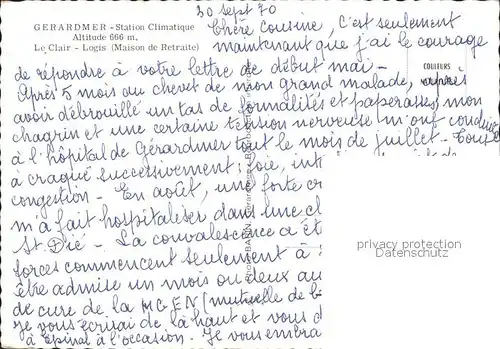 GERARDMER - Station Climatique
Altitude 666 m.
Le Clair - Logis (Maison de Retraite)
30 sept 70
Chère Cousine, c'est seulement
maintenant que j'ai le courage
de répondre à votre lettre de début mai -
Après 5 mois au chevet de mon grand malade, après
avoir débrouillé un tas de formalités et paperasses, mon
chagrin et une certaine tension nerveuse m'ont
à l'hôpital de Gérardmer tout le mois de juillet -
à craqué successivement : foie,
congestion - En août, une forte
m'a fait hospitaliser dans une
St Dié - La convalescence a
forces commencent seulement à
être admise un mois ou deux au
de cure de la MGEN (mutuelle de
Je vous écrirai de là-haut et vous
à Epinal à l'occasion. Je vous
COULEURS
privacy protection
Datenschutz